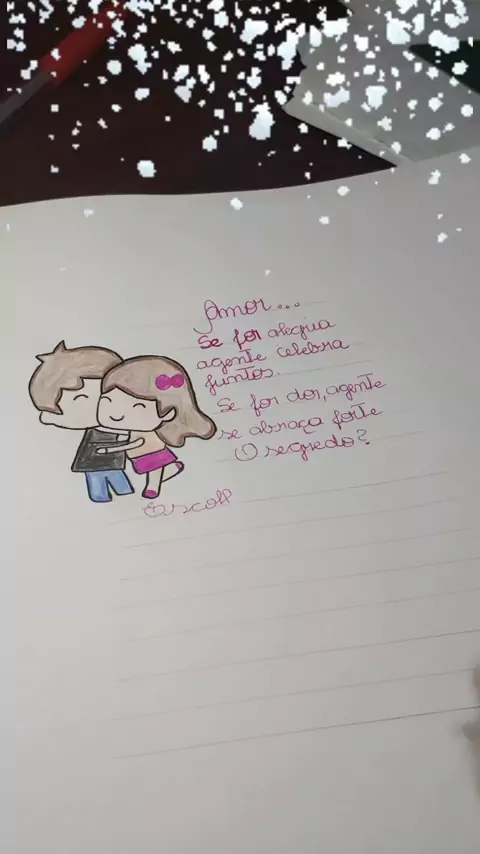 Amor...
Se for alegria
agente celebra
juntos.
Se for dor, agente
se abraça forte
O segredo?
Escolh